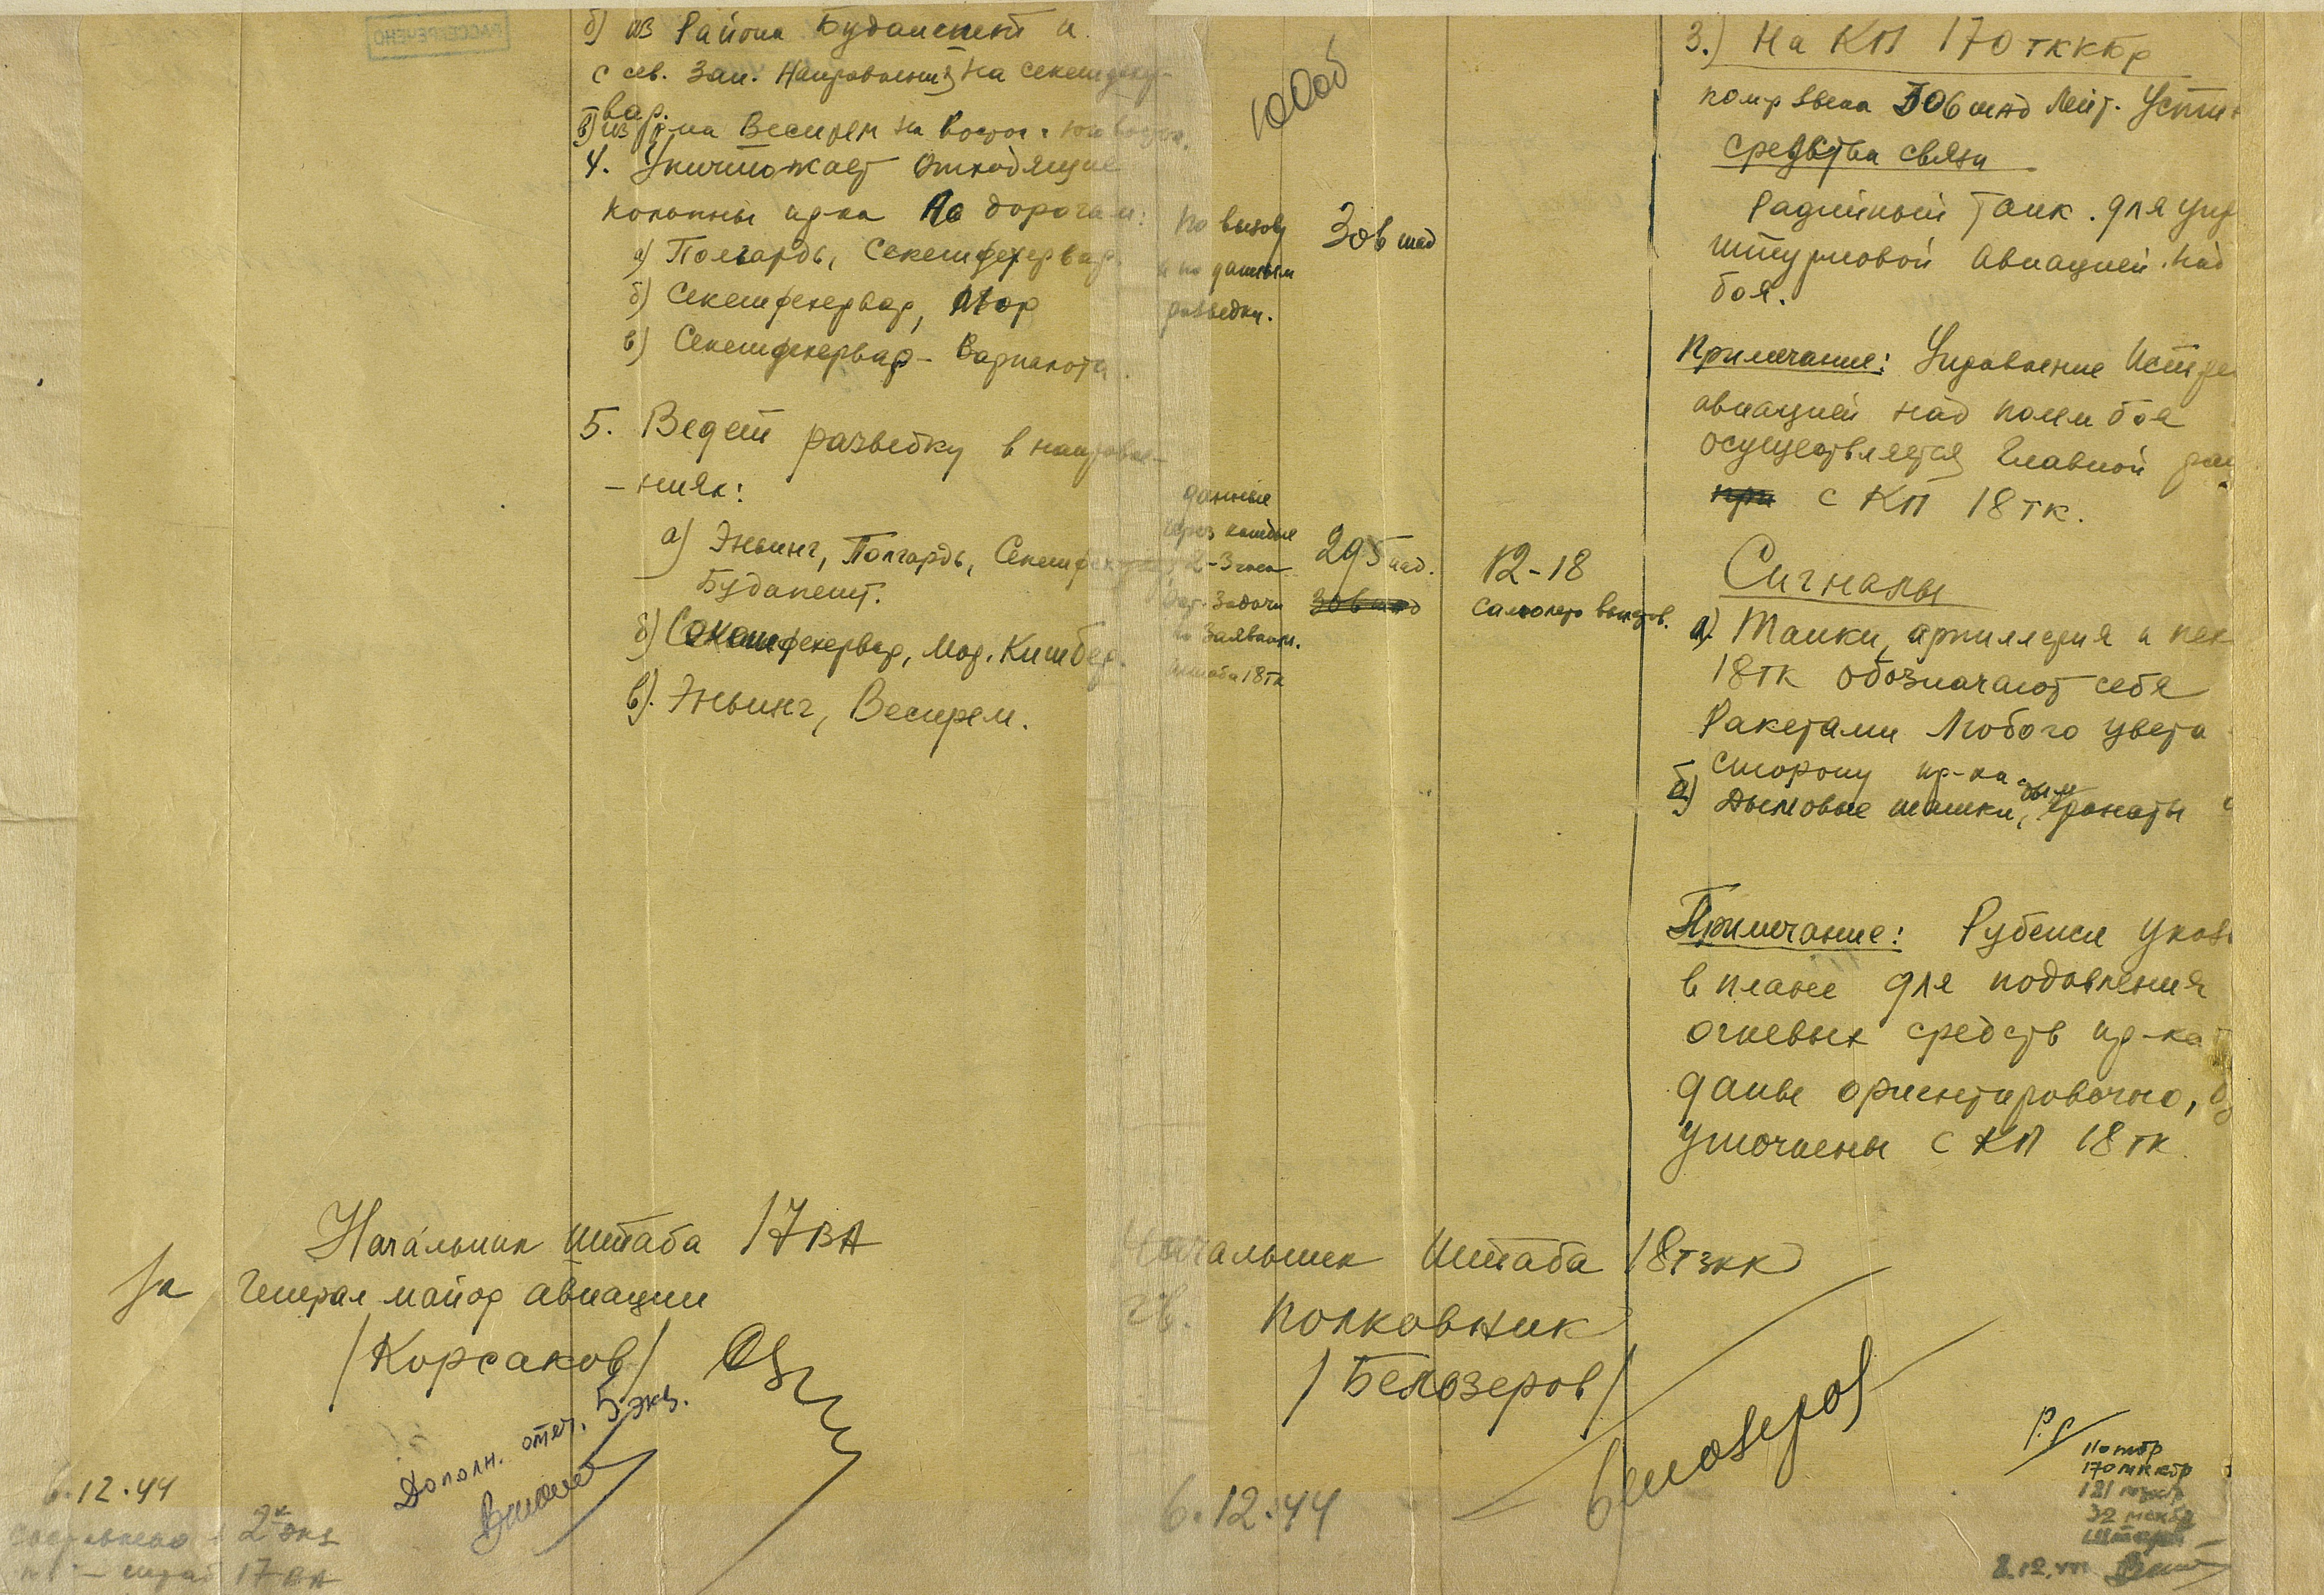 РАССЕКРЕЧЕНО
б) из Района Будапешт и
с сев. Зап. Направления на Секешфехер-
вар.
в) из р-на Веспрем на Восток и юго восток.
4. Уничтожает отходящие
колонны пр-ка по дорогам:
а) Полгардь, Секешфехервар.
б) Секешфехервар, Мор
в) Секешфехервар - Варпалота.
5. Ведет разведку в направле-
- ниях:
а) Эньинг, Полгардь, Секешфехервар,
Будапешт.
б) Секешфехервар, Мор, Кишбер.
в). Эньинг, Веспрем.
По вызову
и по данным
разведки.
306 шад
данные
через каждые
2-3 часа
Задачи
по заявкам.
штаба 18тк
295 иад.
306 шад
12-18
самолето вылетов.
3.) На КП 170 тккбр
комр звена 306 шад Лейт.
средства связи
Радийный танк. для
штурмовой Авиацией над
боя.
Примечание: Управление
авиацией над полем боя
осуществляется Главной
при с КП 18тк.
Сигналы
а). Танки, артиллерия и
18тк обозначают себя
Ракетами Любого цвета
сторону пр-ка
б) Дымовые шашки, дым гранаты
Примечание: Рубежи
в плане для подавления
огневых средств пр-ка
даны ориентировочно,
уточнены с КП 18 тк.
Начальник штаба 17 ВА
За Генерал майор авиации
/Корсаков/
Дополн. отпеч. 5 экз.
6.12.44
2х экз
17 ВА
Начальник Штаба 18тзкк
гв. полковник
/Белозеров/
Белозеров
6.12.44
110 тбр
170 тккбр
181
32
8.12.44